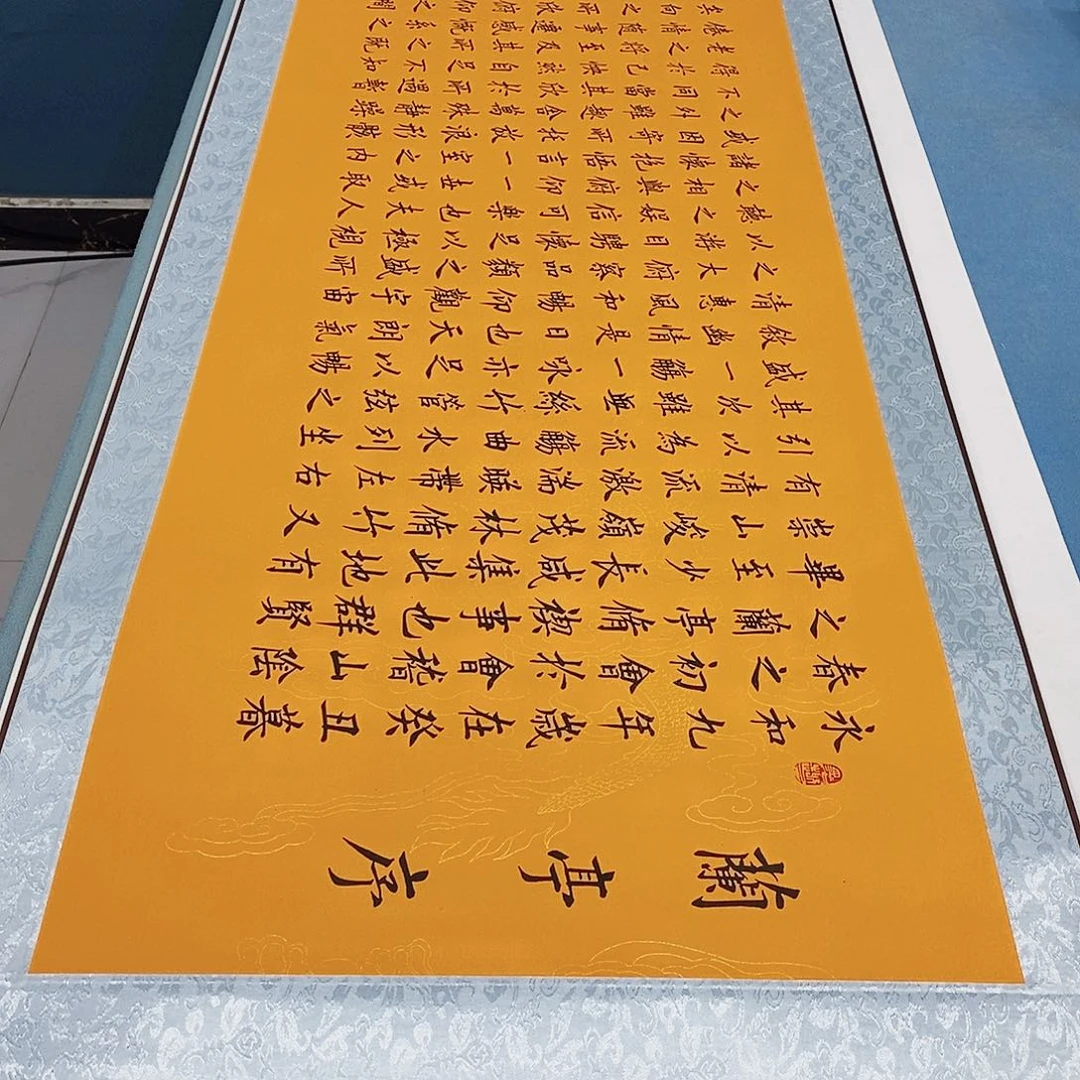 蘭亭序
永和九年歲在癸丑暮
春之初會於會稽山陰
之蘭亭脩禊事也群賢
畢至少長咸集此地有
崇山峻嶺茂林脩竹又
有清流激湍暎帶左右
引以為流觴曲水列坐
其次雖無絲竹管弦之
盛一觴一詠亦足以暢
敘幽情是日也天朗氣
清惠風和暢仰觀宇宙
之大俯察品類之盛所
以游目騁懷足以極視
聽之娛信可樂也夫人
之相與俯仰一世或取
諸懷抱悟言一室之內
或因寄所托放浪形骸
之外雖趣舍萬殊靜躁
不同當其欣於所遇暫
得於己快然自足不知
老之將至及其所之既
倦情隨事遷感慨系之
矣向之所欣俯仰之間